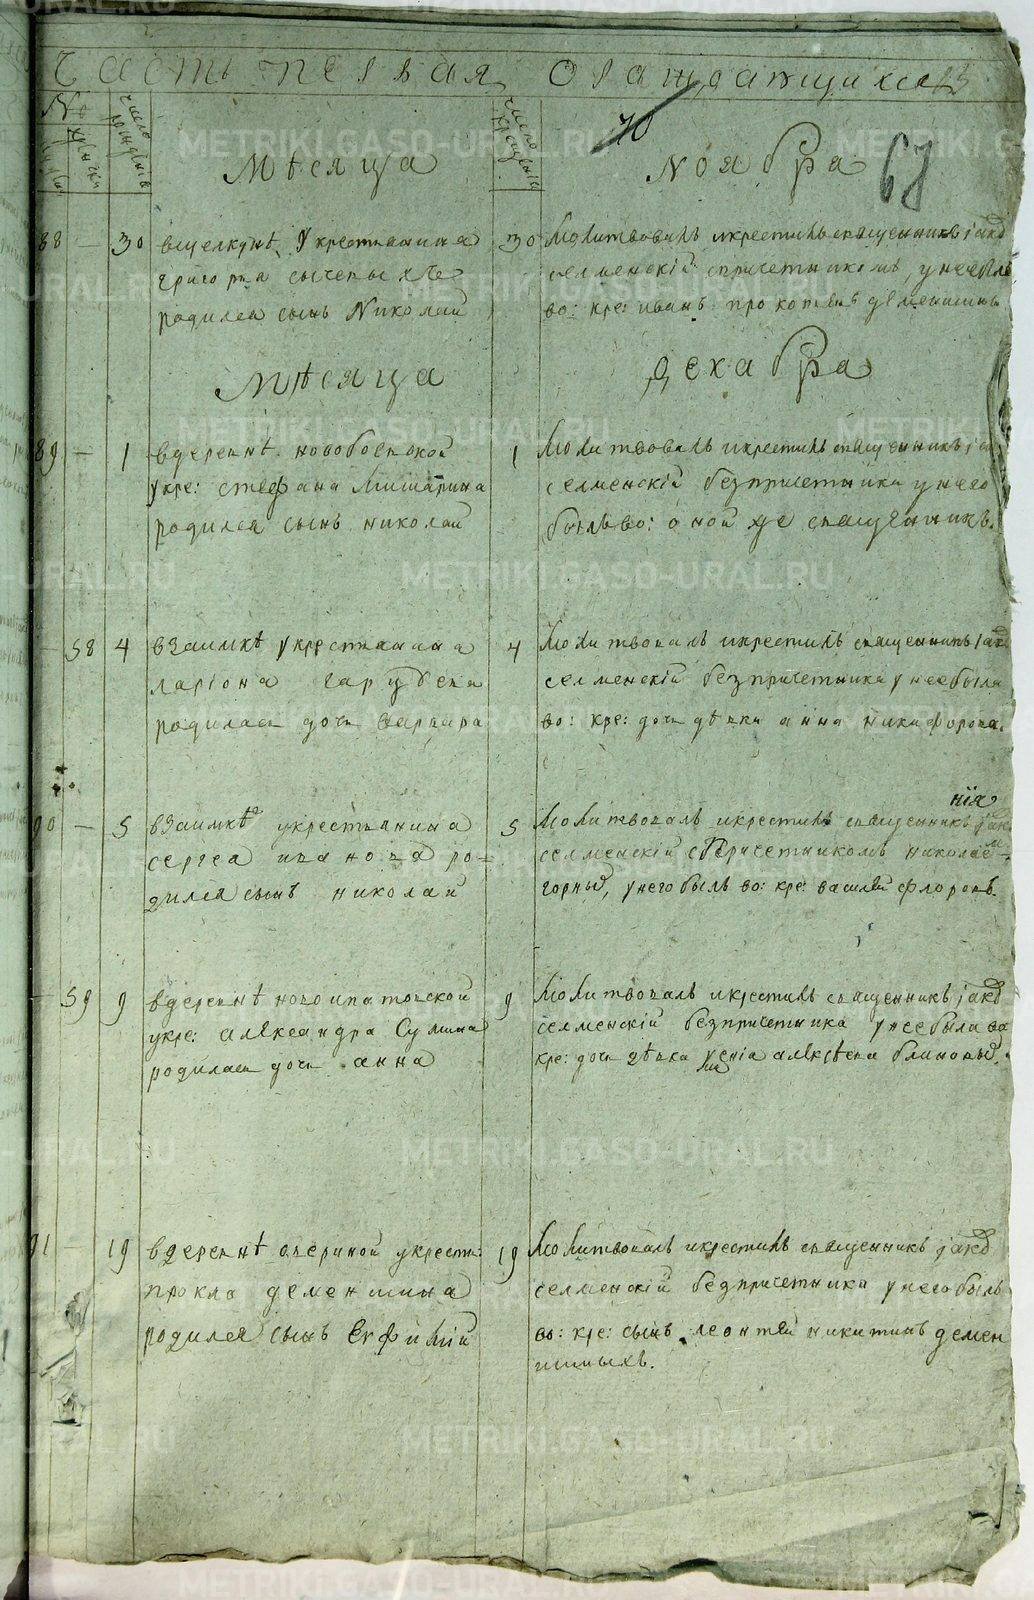 Часть первая о раждающихся
№
число рожденія
число крещенія
70
Мѣсяца
Ноября
68
88 — 30 вщелкунѣ укрестьянина
григорья сычевыхъ
родился сынъ Николай
30 Молитвовалъ икрестилъ священникъ
селменскій спричетникомъ, унего былъ
во: кре: иванъ прокопьевъ деменшинъ
Мѣсяца
декабря
89 — 1 вдеревнѣ новобоевской
укре: стефана Мишарина
родился сынъ николай
1 Молитвовалъ икрестилъ священникъ
селменскій безпричетника унего
былъ во: оной же священникъ.
— 58 4 взаимкѣ укрестьянина
ларіона
родилась дочь варвара
4 Молитвовалъ икрестилъ священникъ
селменскій безпричетника унее была
во: кре: дочь дѣвка анна никифорова.
90 — 5 взаимкѣ укрестьянина
сергея иванова ро-
дился сынъ николай
нія
5 Молитвовалъ икрестилъ священникъ
селменскій спричетникомъ николаемъ
горныи, унего былъ во: кре: василей флоровъ.
— 59 9 вдеревнѣ новоипатовской
укре: александра Сулина
родилась дочь анна
9 Молитвовалъ икрестилъ священникъ
селменскій безпричетника унее была во
кре: дочь дѣвка алексѣева блиновыхъ.
91 — 19 вдеревнѣ озерной укрестья:
прокла деменшина
родился сынъ Евфимій
19 Молитвовалъ икрестилъ священникъ
селменскій безпричетника унего былъ
во: кре: сынъ леонтей никитинъ демен
шиныхъ.
METRIKI.GASO-URAL.RU